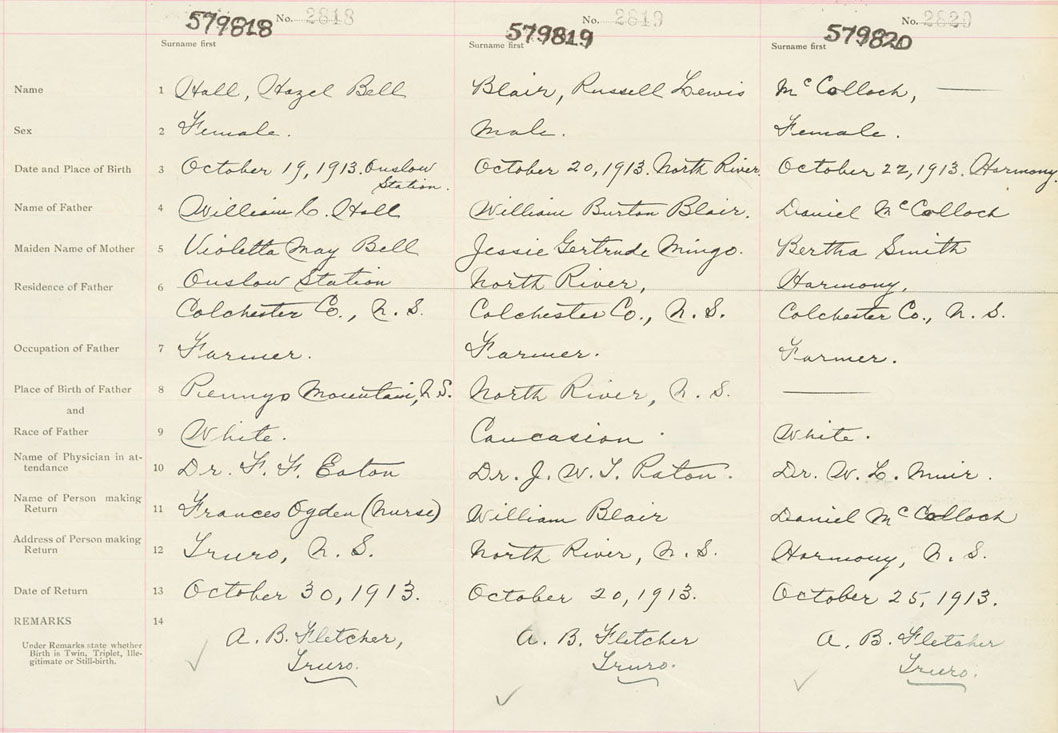 No. 2818 No. 2819 No. 2820
579818 579819 579820
Surname first Surname first Surname first
Name 1 Hall, Hazel Bell Blair, Russell Lewis McColloch, ——
Sex 2 Female. Male. Female.
Date and Place of Birth 3 October 19, 1913. Onslow October 20, 1913. North River October 22, 1913. Harmony.
Station.
Name of Father 4 William C. Hall William Burton Blair. Daniel McColloch
Maiden Name of Mother 5 Violetta May Bell Jessie Gertrude Mingo. Bertha Smith
Residence of Father 6 Onslow Station North River, Harmony,
Colchester Co., N. S. Colchester Co., N. S. Colchester Co., N. S.
Occupation of Father 7 Farmer. Farmer. Farmer.
Place of Birth of Father 8 Pennys Mountain, N.S. North River, N. S. ——
and
Race of Father 9 White. Caucasion. White.
Name of Physician in at-
tendance 10 Dr. F. F. Eaton Dr. J. W. T. Paton. Dr. W. L. Muir.
Name of Person making
Return 11 Frances Ogden (Nurse) William Blair Daniel McColloch
Address of Person making
Return 12 Truro, N. S. North River, N. S. Harmony, N. S.
Date of Return 13 October 30, 1913. October 20, 1913. October 25, 1913.
REMARKS 14 A. B. Fletcher, A. B. Fletcher A. B. Fletcher
Under Remarks state whether
Birth is Twin, Triplet, Ille-
gitimate or Still-birth.
Truro. Truro. Truro.